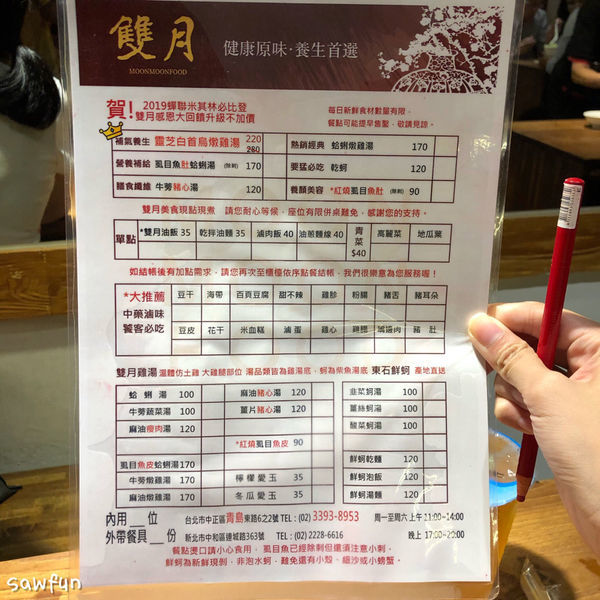 雙月
MOONMOONFOOD
健康原味·養生首選
賀! 2019蟬聯米其林必比登
雙月感恩大回饋升級不加價
每日新鮮食材數量有限。
餐點可能提早售鏧,敬請見諒。
補氣養生 靈芝白首烏燉雞湯 220 280
熱銷經典 蛤蜊燉雞湯 170
營養補給 虱目魚肚蛤蜊湯 (除刺) 170
要猛必吃 乾蚵 120
膳食纖維 牛蒡豬心湯 120
養顏美容 *紅燒虱目魚肚 (除刺) 90
雙月美食現點現煮 請您耐心等候,座位有限併桌難免,感謝您的支持。
單點 *雙月油飯 35 乾拌油麵 35 滷肉飯 40 油蔥麵線 40 青菜 $40 高麗菜 地瓜葉
如結帳後有加點需求,請您再次至櫃檯依序點餐結帳,我們很樂意為您服務喔!
*大推薦
中藥滷味
饕客必吃
豆干 海帶 百頁豆腐 甜不辣 雞胗 粉腸 豬舌 豬耳朵
豆皮 花干 米血糕 滷蛋 雞心 雞腿 嘴邊肉 豬肚
雙月雞湯 溫體仿土雞 大雞腿部位 湯品類皆為雞湯底,蚵為柴魚湯底 東石鮮蚵 產地直送
蛤蜊湯 100
麻油豬心湯 120
韭菜蚵湯 100
牛蒡蔬菜湯 100
薑片豬心湯 120
薑絲蚵湯 100
麻油瘦肉湯 120
酸菜蚵湯 100
*紅燒虱目魚皮 90
虱目魚皮蛤蜊湯 170
鮮蚵乾麵 120
牛蒡燉雞湯 170
檸檬愛玉 35
鮮蚵泡飯 120
麻油燉雞湯 170
冬瓜愛玉 35
鮮蚵湯麵 120
內用__位 台北市中正區青島東路6之2號 TEL:(02) 3393-8953 周一至周六 上午 11:00~14:00
外帶餐具__份 新北市中和區連城路363號 TEL:(02) 2228-6616 晚上 17:00~20:00
餐點燙口請小心食用,虱目魚已經除刺但還須注意小刺,
鮮蚵為新鮮現剝,非泡水蚵,難免還有小殼、細沙或小螃蟹。
sawfun